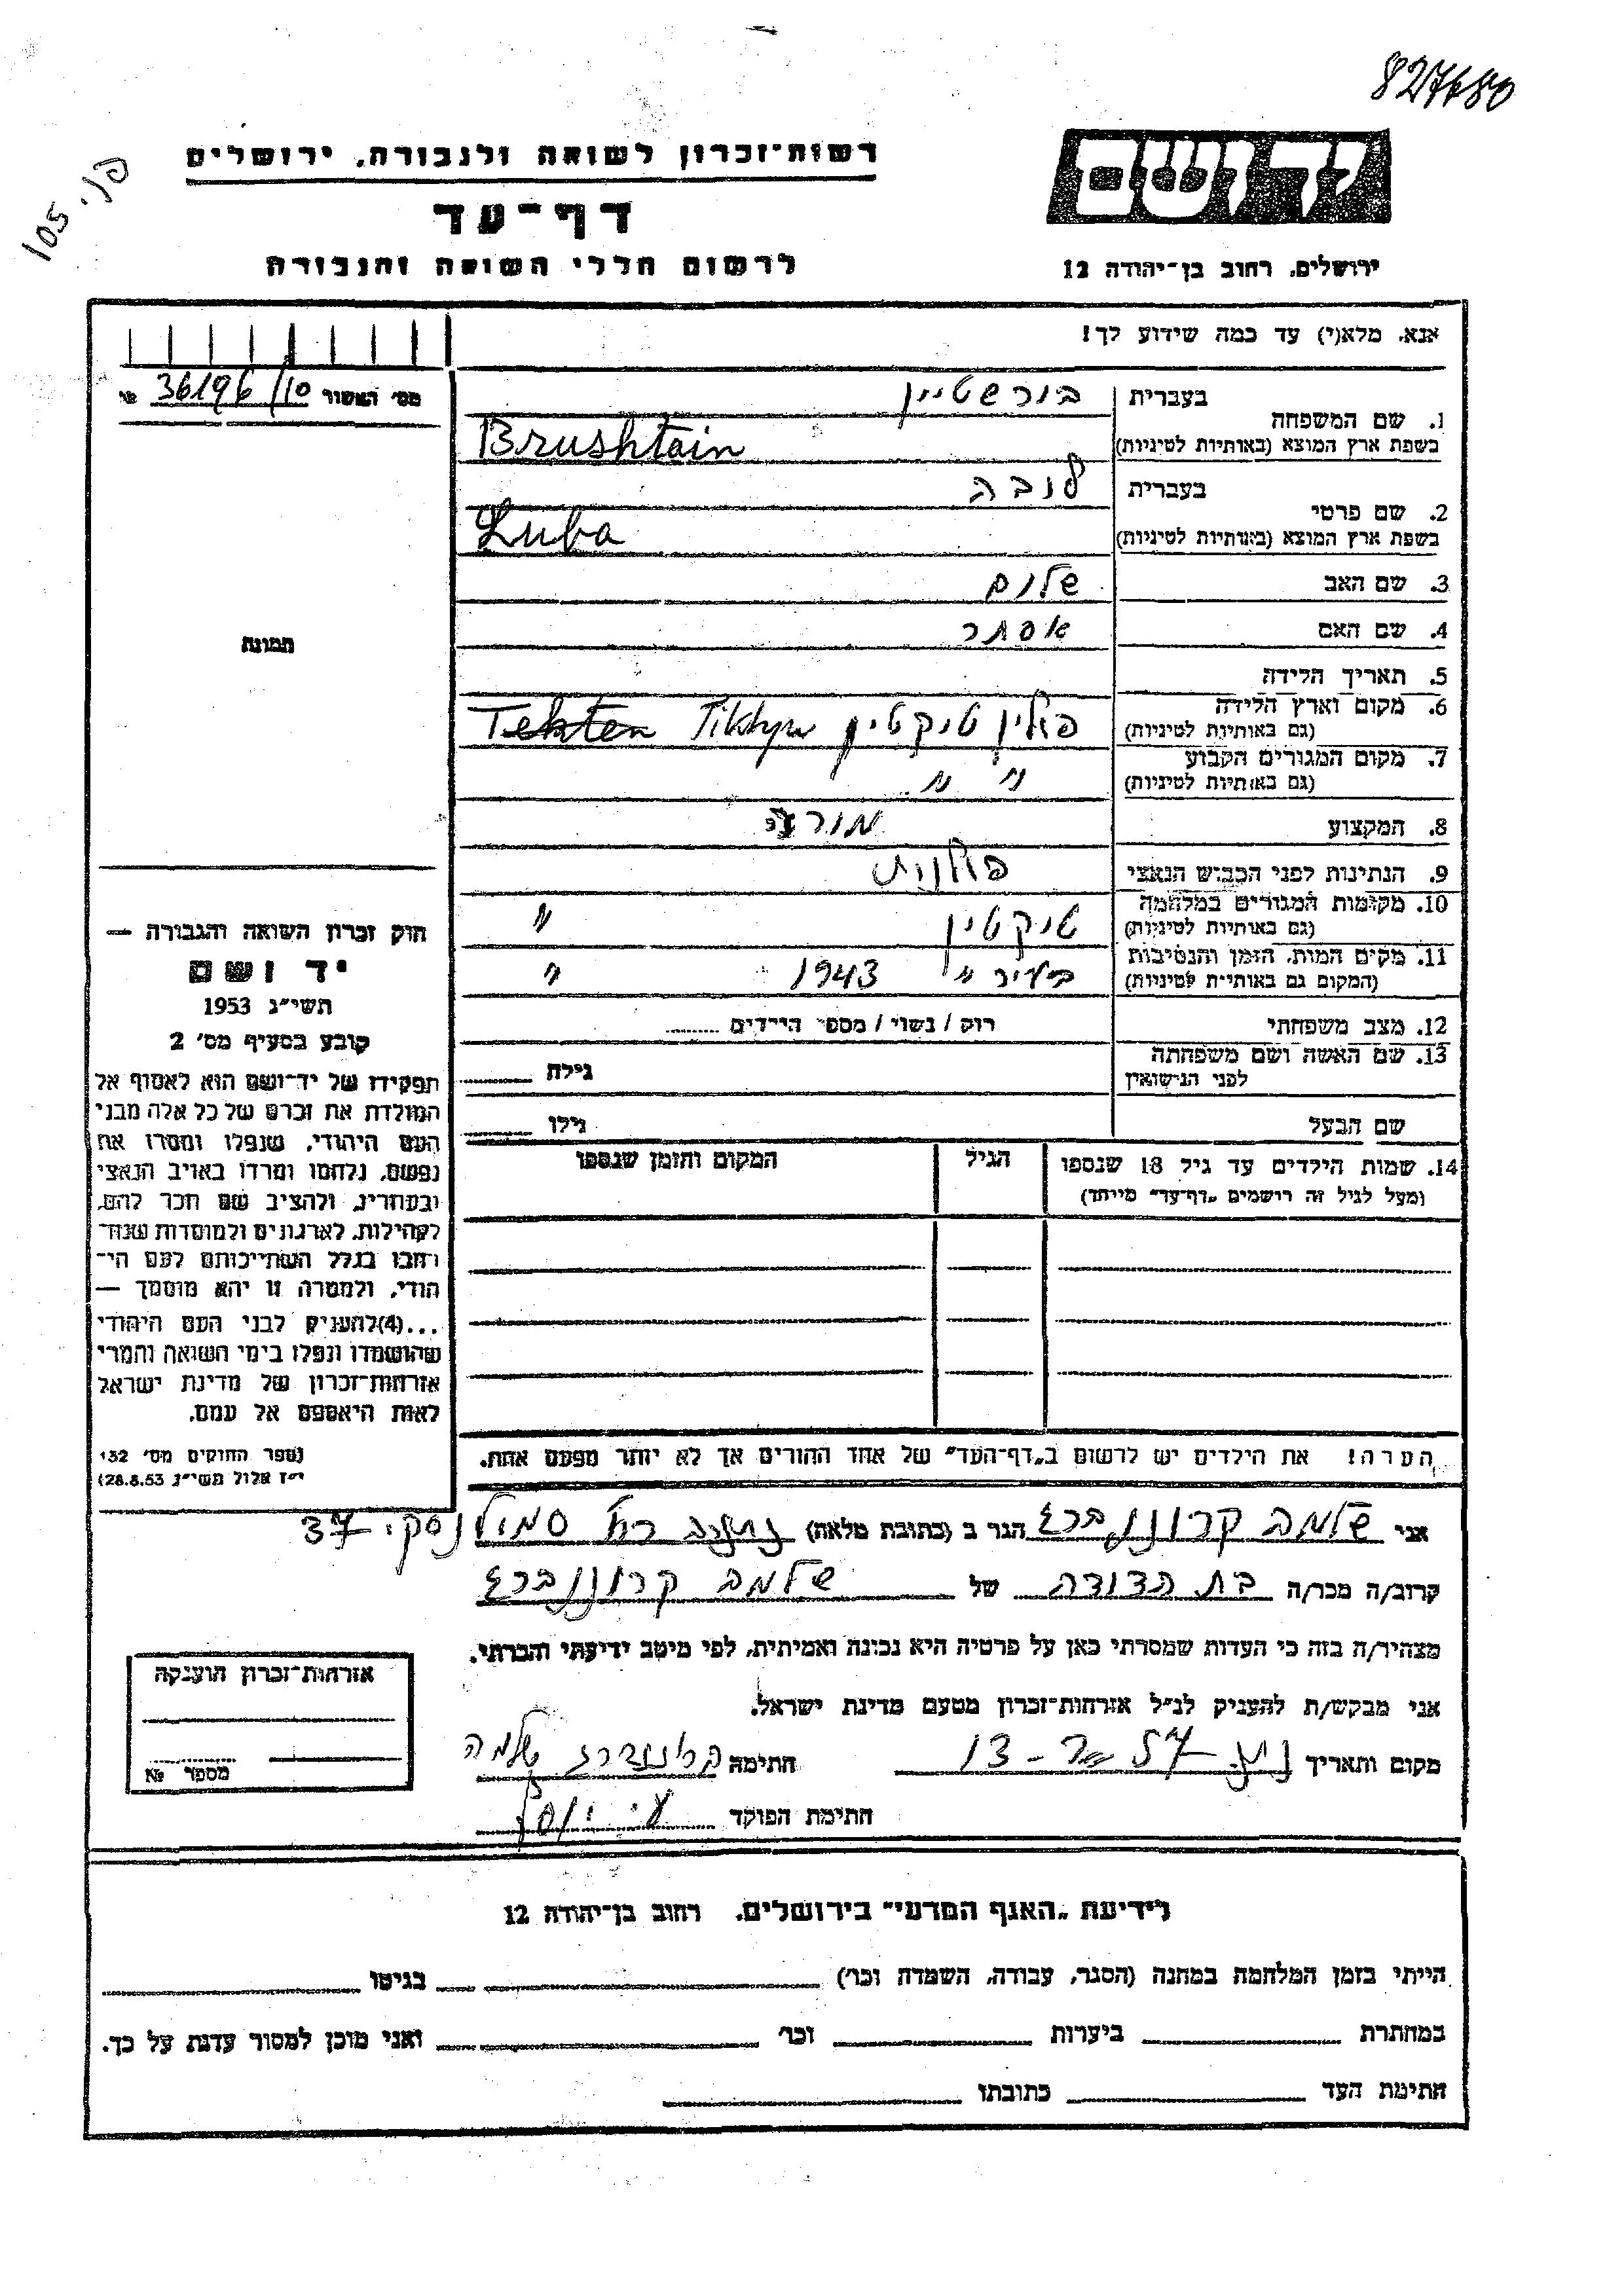 827680
פני. 105
רשות־זכרון לשואה ולגבורה, ירושלים
יד ושם
דף־עד
לרשום חללי השואה והגבורה
ירושלים, רחוב בן־יהודה 12
אנא, מלא(י) עד כמה שידוע לך!
מס׳ האשור 36196/10
1. שם המשפחה בעברית בורשטיין
בשפת ארץ המוצא (באותיות לטיניות) Brushtain
2. שם פרטי בעברית לובה
בשפת ארץ המוצא (באותיות לטיניות) Luba
3. שם האב שלום
4. שם האם אסתר
תמונה
5. תאריך הלידה
6. מקום וארץ הלידה (גם באותיות לטיניות) פולין טיקטין Tiktyn Tekten
7. מקום המגורים הקבוע (גם באותיות לטיניות) " "
8. המקצוע מורה
9. הנתינות לפני הכבוש הנאצי פולנית
10. מקומות המגורים במלחמה (גם באותיות לטיניות) טיקטין "
11. מקום המות, הזמן והנסיבות (המקום גם באותיות לטיניות) ביער " 1943 "
12. מצב משפחתי רוק / נשוי / מספר הילדים
13. שם האשה ושם משפחתה לפני הנישואין גילה
שם הבעל גילו
14. שמות הילדים עד גיל 18 שנספו הגיל המקום והזמן שנספו
(מעל לגיל זה רושמים „דף־עד" מיוחד)
חוק זכרון השואה והגבורה —
יד ושם
תשי״ג 1953
קובע בסעיף מס׳ 2
תפקידו של יד־ושם הוא לאסוף אל
המולדת את זכרם של כל אלה מבני
העם היהודי, שנפלו ומסרו את
נפשם, נלחמו ומרדו באויב הנאצי
ובעוזריו, ולהציב שם וזכר להם,
לקהילות, לארגונים ולמוסדות שנח־
רחבו בגלל השתייכותם לעם הי־
הודי, ולמטרה זו יהא מוסמך —
...(4) להעניק לבני העם היהודי
שהושמדו ונפלו בימי השואה והמרי
אזרחות־זכרון של מדינת ישראל
לאות היאספם אל עמם.
(ספר החוקים מס׳ 132
י״ז אלול תשי״ג 28.8.53)
הערה! את הילדים יש לרשום ב„דף־העד" של אחד ההורים אך לא יותר מפעם אחת.
אני שלמה קרוננברג הגר ב (כתובת מלאה) סמולנסקי 37
קרוב/ה מכר/ה בת הדודה של שלמה קרוננברג
מצהיר/ה בזה כי העדות שמסרתי כאן על פרטיה היא נכונה ואמיתית, לפי מיטב ידיעתי והכרתי.
אני מבקש/ת להעניק לנ״ל אזרחות־זכרון מטעם מדינת ישראל.
מקום ותאריך 57 13- חתימה שלמה
חתימת הפוקד
אזרחות־זכרון הוענקה
מספר №
לידיעת „האגף המדעי" בירושלים, רחוב בן־יהודה 12
הייתי בזמן המלחמה במחנה (הסגר, עבודה, השמדה וכו׳) בגיטו
במחתרת ביערות וכו׳ ואני מוכן למסור עדות על כך.
חתימת העד כתובתו